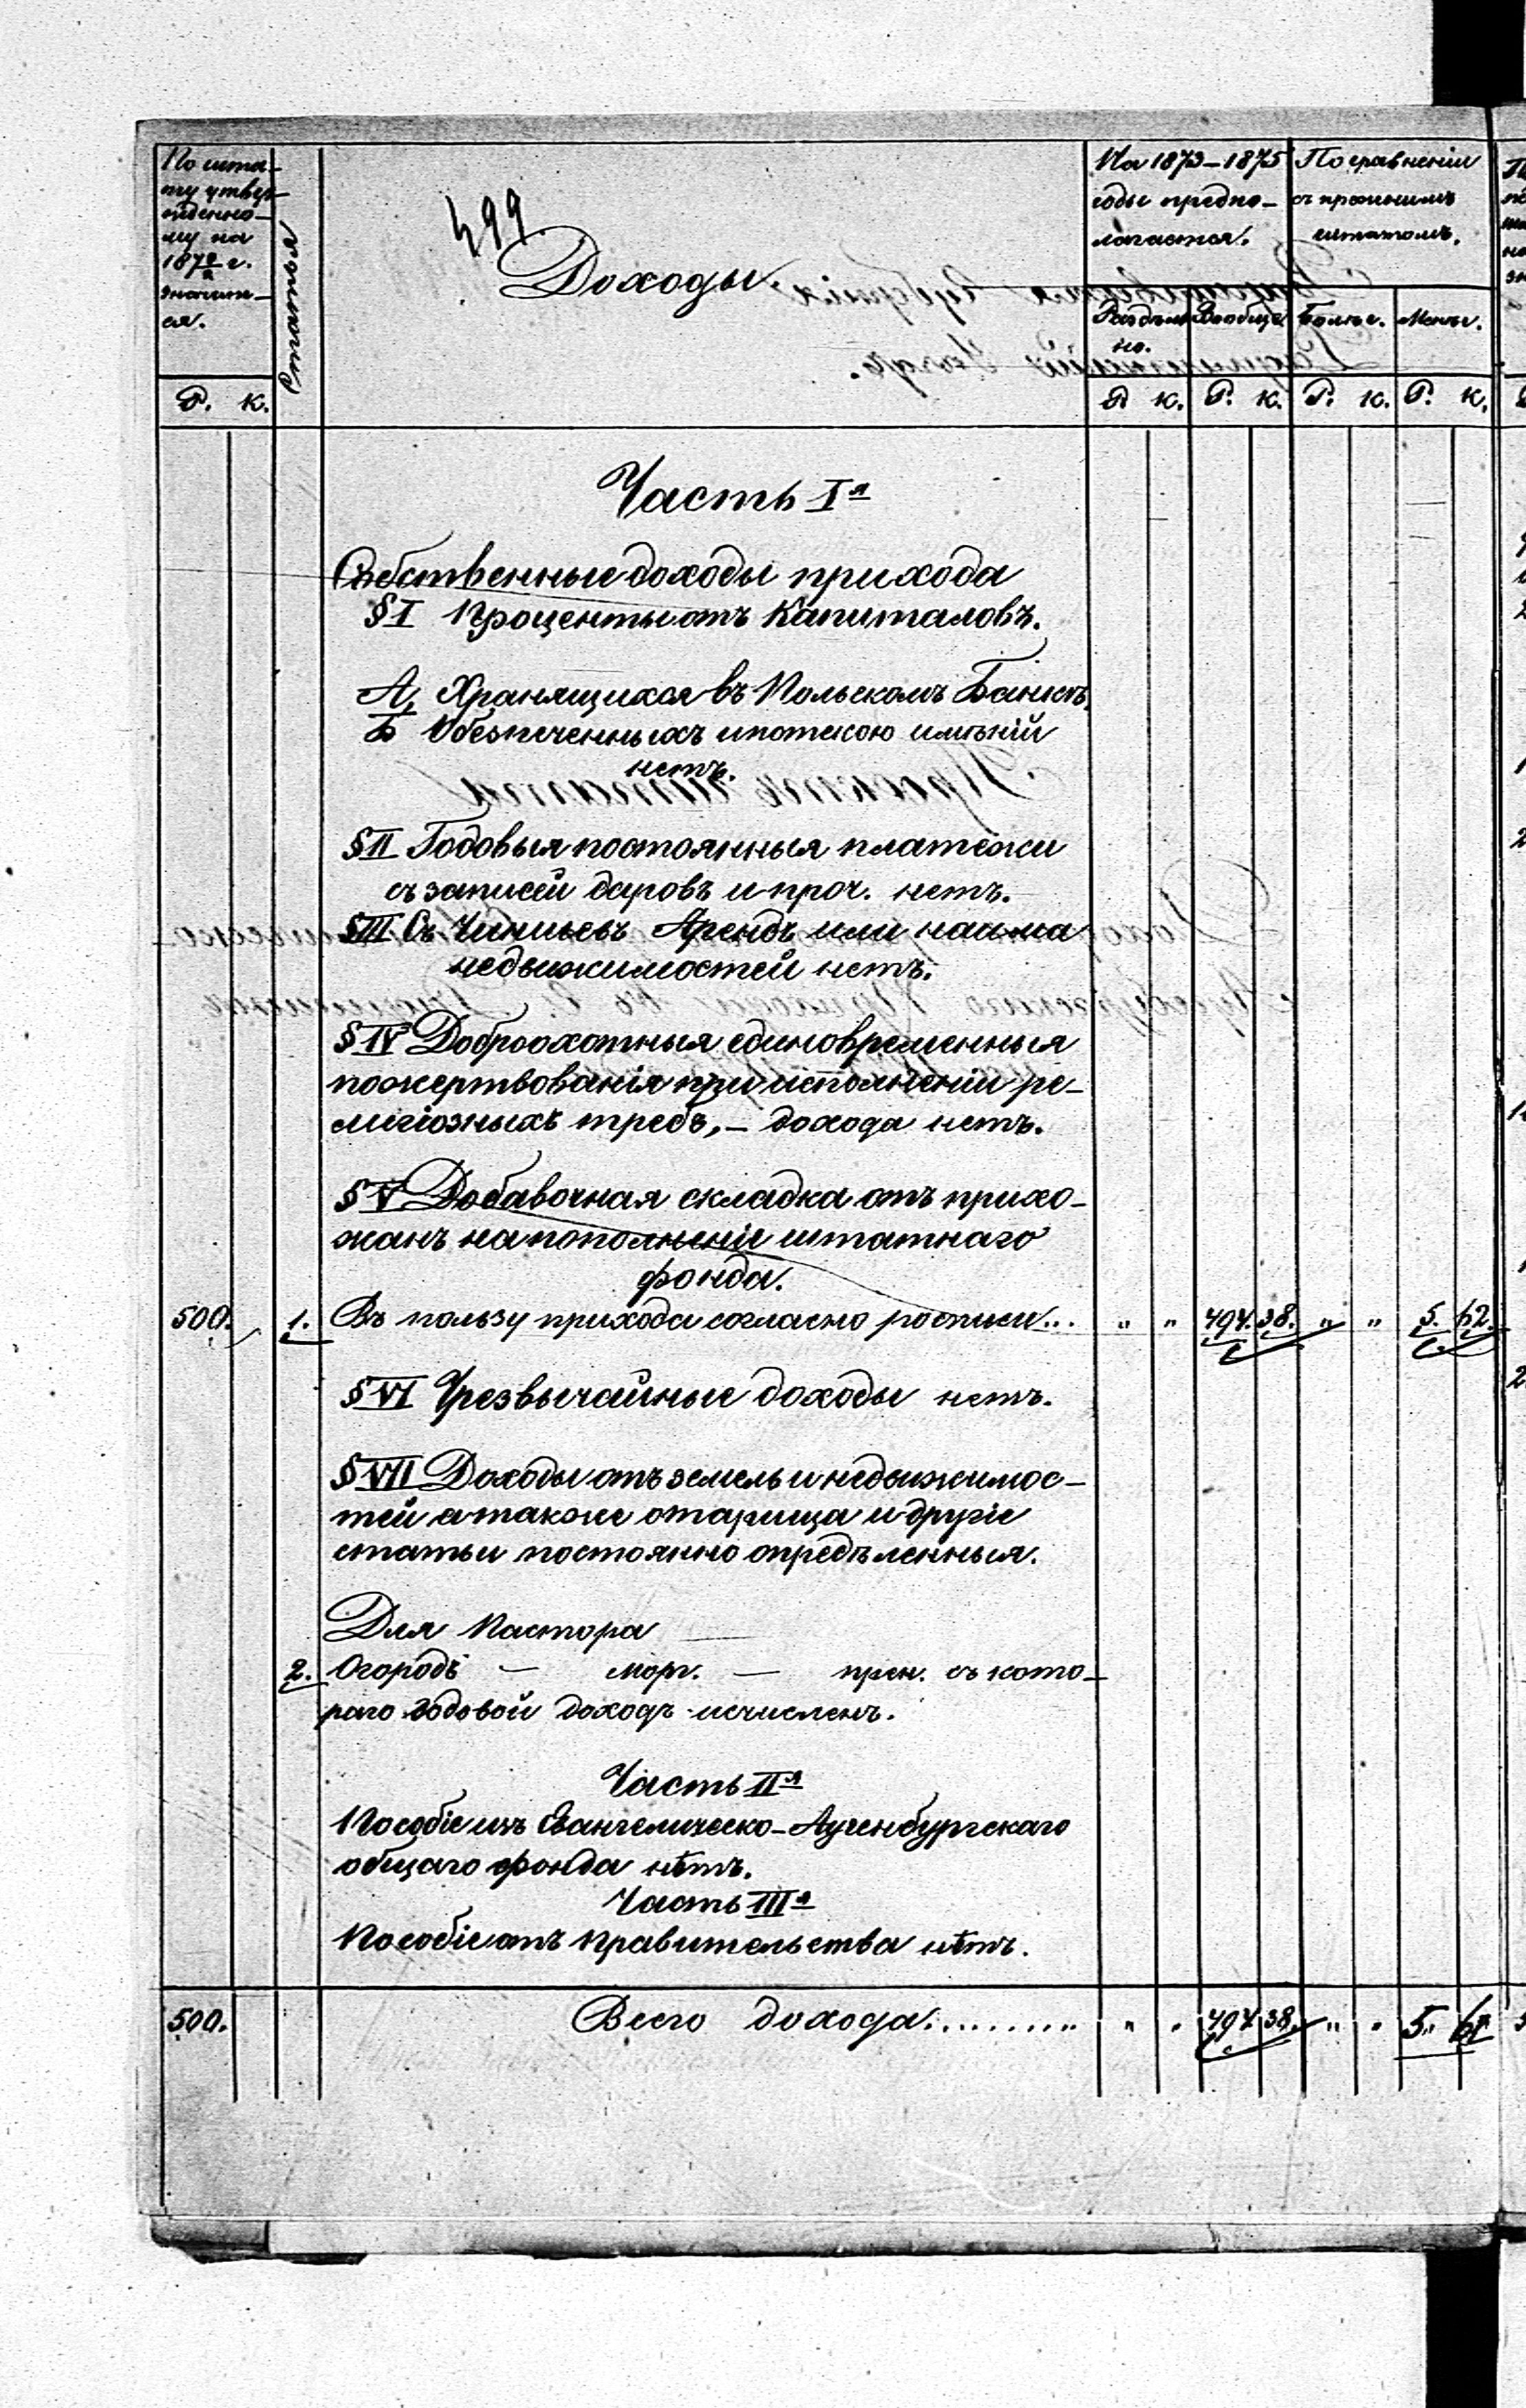 По шта-
ту утвер-
жденно-
му на
187 г.
значит-
ся.
Р. К.
Статья
499
Доходы
На 1873–1875
годы предпо-
лагается.
Раздѣль-
но.
Вообще
Р К. Р. К.
По сравненiи
съ прежнимъ
штатомъ.
Болѣе. Менѣе.
Р. К. Р. К.
Часть Iя
Собственные доходы прихода
§ I Проценты отъ Капиталовъ.
А, Хранящихся въ Польскомъ Банкѣ,
Б Обезпеченныхъ ипотекою имѣнiй
нетъ.
§ II Годовыя постоянныя платежи
съ записей даровъ и проч. нетъ.
§ III Съ Чиншевъ Арендъ или найма
недвижимостей нетъ.
§ IV Доброохотныя единовременныя
пожертвованiя при исполненiи ре-
лигiозныхъ требъ, – дохода нетъ.
§ V Добавочная складка отъ прихо-
жанъ на пополненiе штатнаго
фонда.
500. 1. Въ пользу прихода согласно росписи... " " 494. 38. " " 5. 62.
§ VI Чрезвычайные доходы нетъ.
§ VII Доходы отъ земель и недвижимос-
тей а также отарища и другiе
статьи постоянно опредѣленныя.
Для Пастора
2. Огородъ — морг. — прен. съ кото-
раго годовой доходъ исчисленъ.
Часть IIя
Пособiе изъ Евангелическо-Аугенбургскаго
общаго фонда нѣтъ.
Часть IIIя
Пособiе отъ Правительства нѣтъ.
500. Всего дохода......... " " 494 38. " " 5. 62